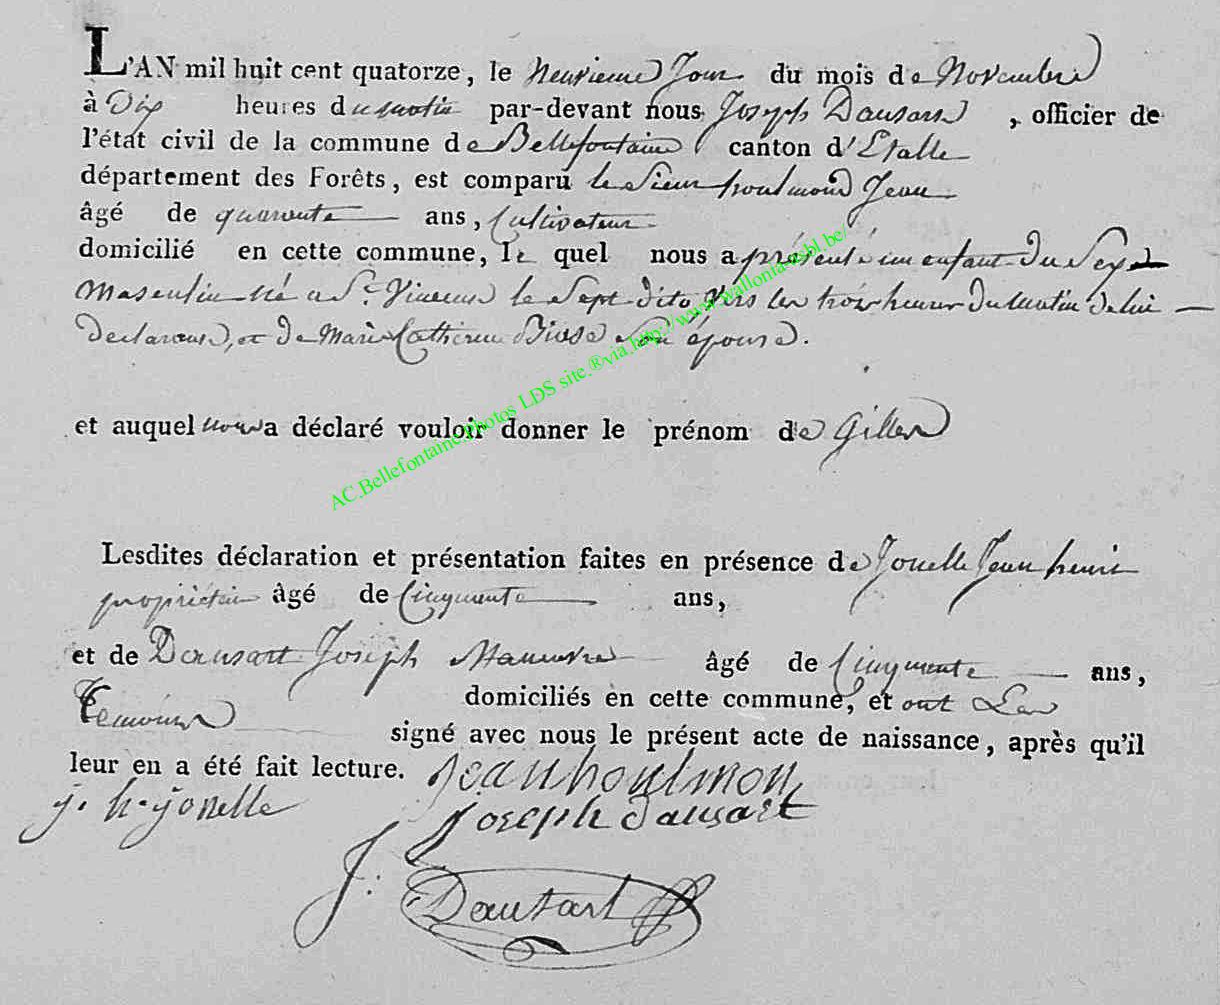 L'AN mil huit cent quatorze, le neuvieme Jour du mois de Novembre
à Dix heures du matin par-devant nous Joseph Dausart, officier de
l'état civil de la commune de Bellefontaine canton d'Etalle
département des Forêts, est comparu le Sieur houlmond Jean
âgé de quarante ans, Cultivateur
domicilié en cette commune, le quel nous a présenté un enfant du Sexe
Masculin né a St. Vincent le Sept dito vers les trois heures du matin de lui
declarant, et de Marie Catherine Bisse son épouse.
et auquel nous a déclaré vouloir donner le prénom de Gilles
Lesdites déclaration et présentation faites en présence de Jonelle Jean henri
proprietaire âgé de Cinquante ans,
et de Dausart Joseph Manuvre âgé de Cinquante ans,
Temoins domiciliés en cette commune, et ont Les
signé avec nous le présent acte de naissance, après qu'il
leur en a été fait lecture. Jean houlmon
j. h. jonelle Joseph dausart
J: Dausart
AC.Bellefontaine.photos LDS site.®via.http://www.wallonia-asbl.be/